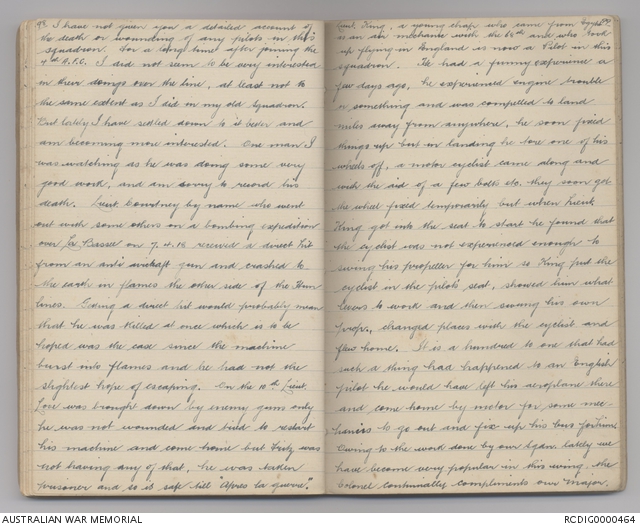 93 I have not given you a detailed account of
the death or wounding of any pilots in this
squadron. For a long time after joining the
4th A.F.C. I did not seem to be very interested
in their doings over the line, at least not to
the same extent as I did in my old Squadron.
But lately I have settled down to it better and
am becoming more interested. One man I
was watching as he was doing some very
good work, and am sorry to record his
death. Lieut. Courtney by name who went
out with some others on a bombing expedition
over La Bassee on 7.4.18 received a direct hit
from an anti aircraft gun and crashed to
the earth in flames the other side of the Hun
lines. Getting a direct hit would probably mean
that he was killed at once which is to be
hoped was the case since the machine
burst into flames and he had not the
slightest hope of escaping. On the 10th Lieut.
Love was brought down by enemy guns only
he was not wounded and tried to restart
his machine and come home but Fritz was
not having any of that, he was taken
prisoner and so is safe till "Apres la guerre".
Lieut. King, a young chap who came from Egypt
is an air mechanic with the 67th and who took
up flying in England is now a Pilot in this
squadron. He had a funny experience a
few days ago, he experienced engine trouble
or something and was compelled to land
miles away from anywhere, he soon fixed
things up but in landing he tore one of his
wheels off, a motor cyclist came along and
with the aid of a few bolts etc. they soon got
the wheel fixed temporarily but when Lieut
King got into the seat to start he found that
the cyclist was not experienced enough to
swing his propeller for him so King put the
cyclist in the pilots seat, showed him what
levers to work and then swung his own
prop., changed places with the cyclist and
flew home. It is a hundred to one that had
such a thing had happened to an English
pilot he would have left his aeroplane there
and come home by motor for some mec-
hanics to go out and fix up his bus for him.
Owing to the work done by our Sqdn. lately we
have become very popular in this wing. the
Colonel continually compliments our Major,
AUSTRALIAN WAR MEMORIAL
RCDIG0000464